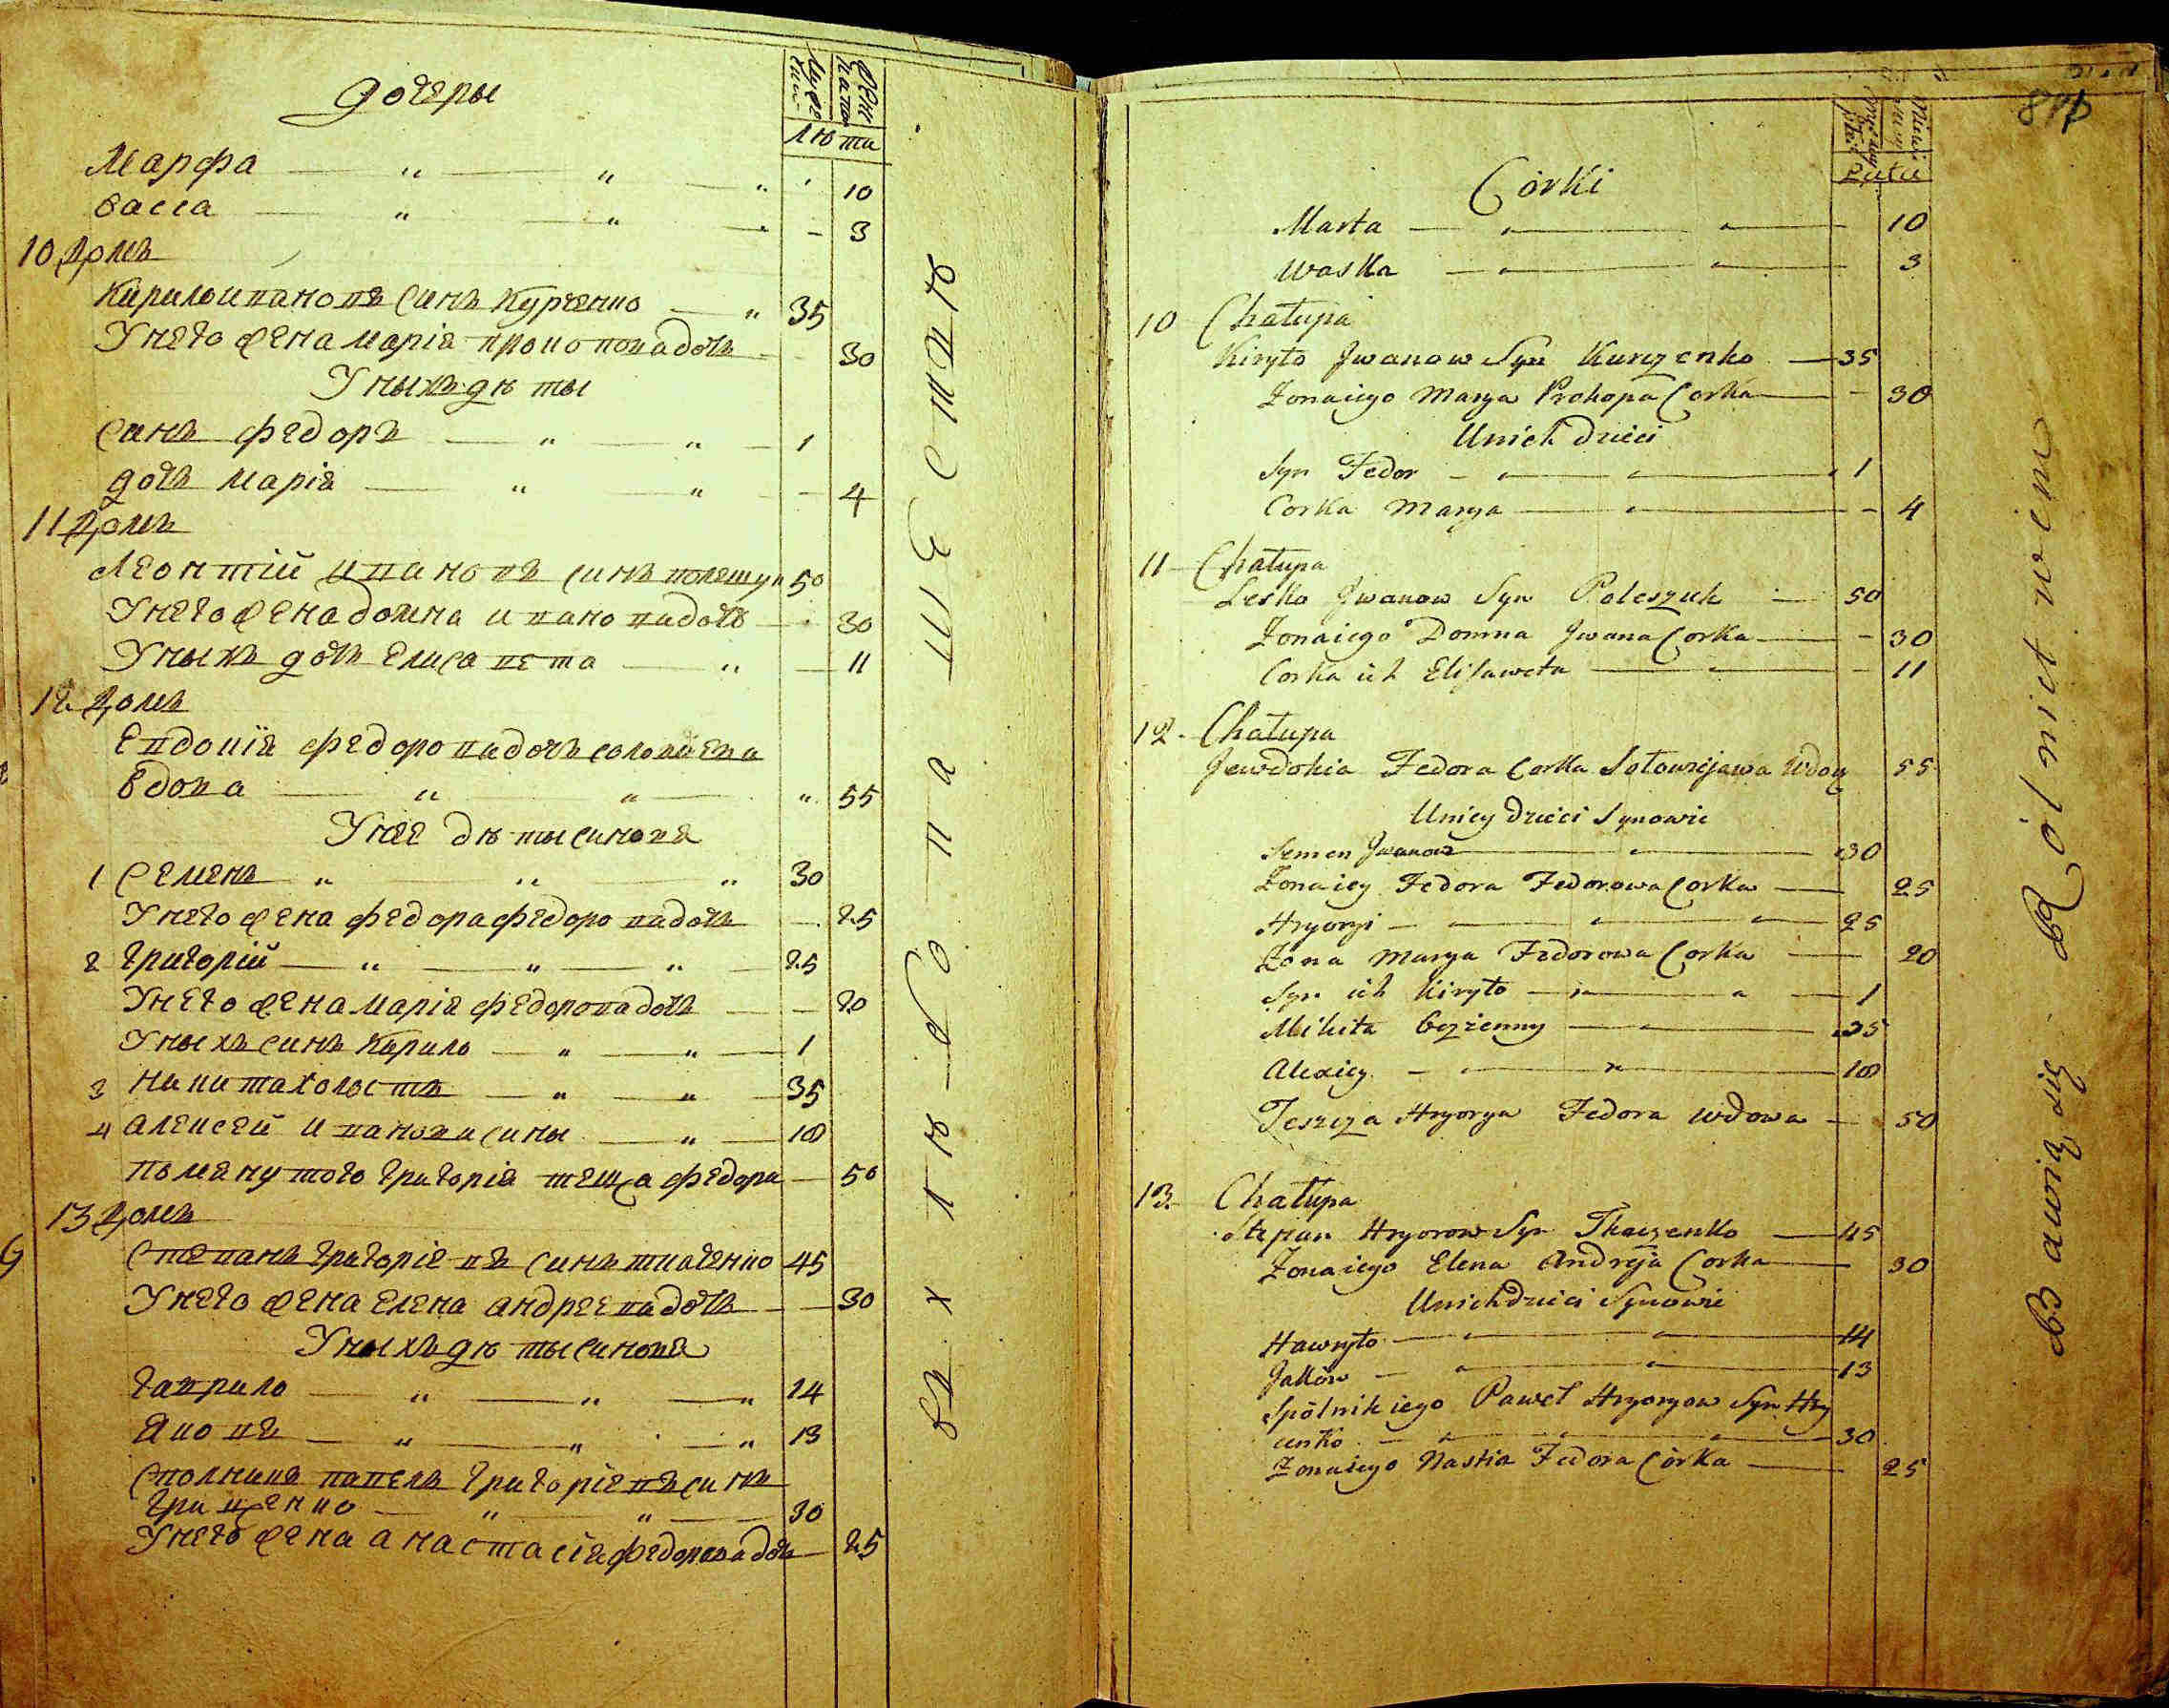 дочеры
мужески
женската
люта
Марфа — " — " — " 10
васса — " — " — 3
10 Домъ
Кирило ивановъ синъ Курченко — " 35
Унего жена марія прокопова дочъ — 30
Уныхъ дѣты
синъ федоръ — " — " — 1
дочъ марія — " — " — 4
11 Домъ
леонтій ивановъ синъ полешук 50
Унего жена домна иванова дочъ — 30
Уныхъ дочъ елисавета — " — 11
12 Домъ
Евдокія федорова дочъ соловиева
вдова — " — " — " 55
Унее дѣты синовя
1 семенъ " — " — " 30
Унего жена федора федорова дочъ — 25
2 григорій — " — " — " — 25
Унего жена марія федорова дочъ — 20
Уныхъ синъ Кирило — " — " — 1
3 никита холостъ — " — " — 35
4 алексей ивановы сины — " — 18
помянутого григорія теща федора — 50
13 Домъ
степанъ григоріевъ синъ ткаченко 45
Унего жена елена андреева дочъ — 30
Уныхъ дѣты синовя
гаврило — " — " — " 14
яковъ — " — " — " 13
сполникъ павелъ григоріевъ синъ
грищенко — " — " — 30
Унего жена анастасія федорова дочъ — 25
въ хлѣбопашестве
Córki
Lata
Marta — " — " — 10
Waska — " — " — 3
10 Chałupa
Kiryło Jwanow Syn Kurczenko — 35
Żona iego Marya Prokopa Corka — 30
U nich dzieci
Syn Fedor — " — " — 1
Corka Marya — " — 4
11 Chałupa
Lesko Jwanow Syn Poleszuk — 50
Żona iego Domna Jwana Corka — 30
Corka ich Elisaweta — " — 11
12. Chałupa
Jewdokia Fedora Corka Sołowiejawa Wdow 55
U niey dzieci Synowie
Semen Jwanow — " — 30
Żona iey Fedora Fedorowa Corka — 25
Hryoryi — " — " — " — 25
Żona Marya Fedorowa Corka — 20
Syn ich Kiryło — " — " — 1
Mikita bezżenny — " — 35
Alexiey — " — " — 18
Teszcza Hryorya Fedora Wdowa — 50
13. Chałupa
Stepan Hryorow Syn Tkaczenko — 45
Żona iego Elena Andreja Corka — 30
U nich dzieci Synowie
Hawryło — " — " — 14
Jakow — " — " — 13
Spólnik iego Paweł Hryoryow Syn Hry
cenko — " — " — " — 30
Żona iego Nastia Fedora Córka — 25
Bawią się Rólnictwem